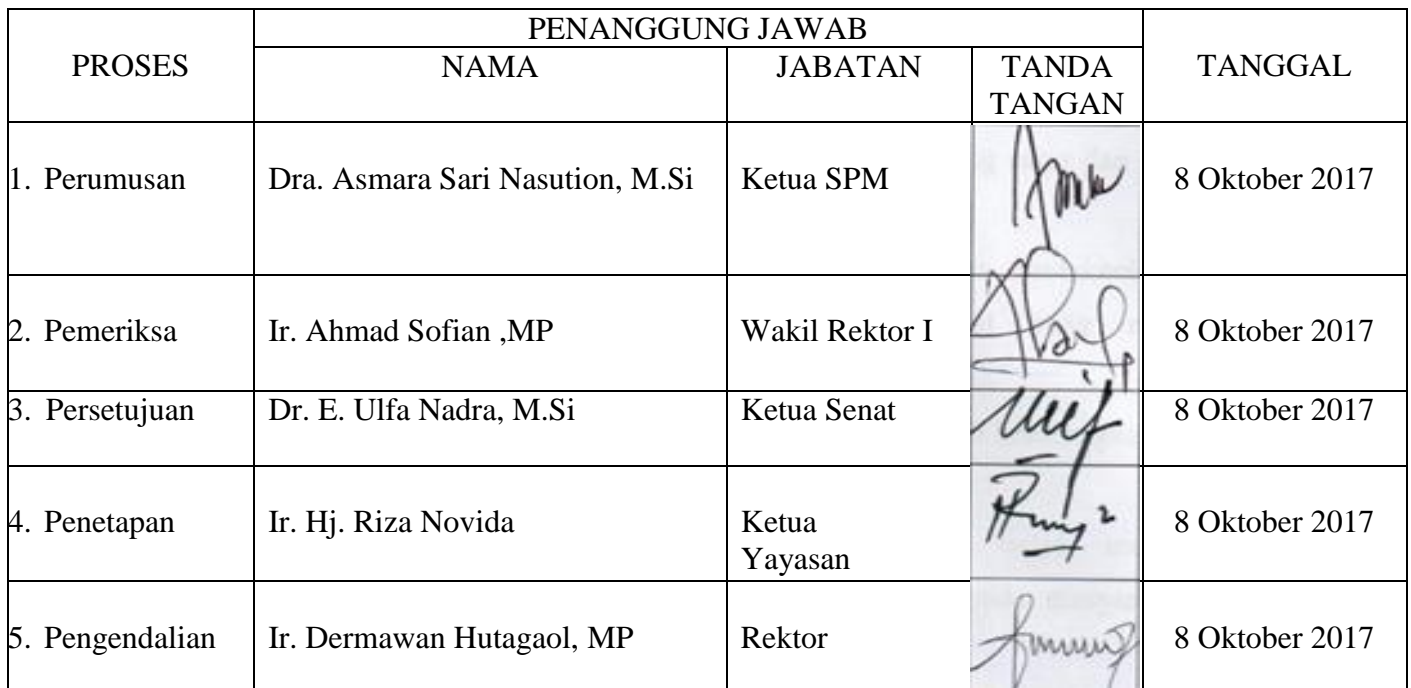 PROSES
PENANGGUNG JAWAB
TANGGAL
NAMA
JABATAN
TANDA
TANGAN
1. Perumusan
Dra. Asmara Sari Nasution, M.Si
Ketua SPM
8 Oktober 2017
2. Pemeriksa
Ir. Ahmad Sofian ,MP
Wakil Rektor I
8 Oktober 2017
3. Persetujuan
Dr. E. Ulfa Nadra, M.Si
Ketua Senat
8 Oktober 2017
4. Penetapan
Ir. Hj. Riza Novida
Ketua
Yayasan
8 Oktober 2017
5. Pengendalian
Ir. Dermawan Hutagaol, MP
Rektor
8 Oktober 2017